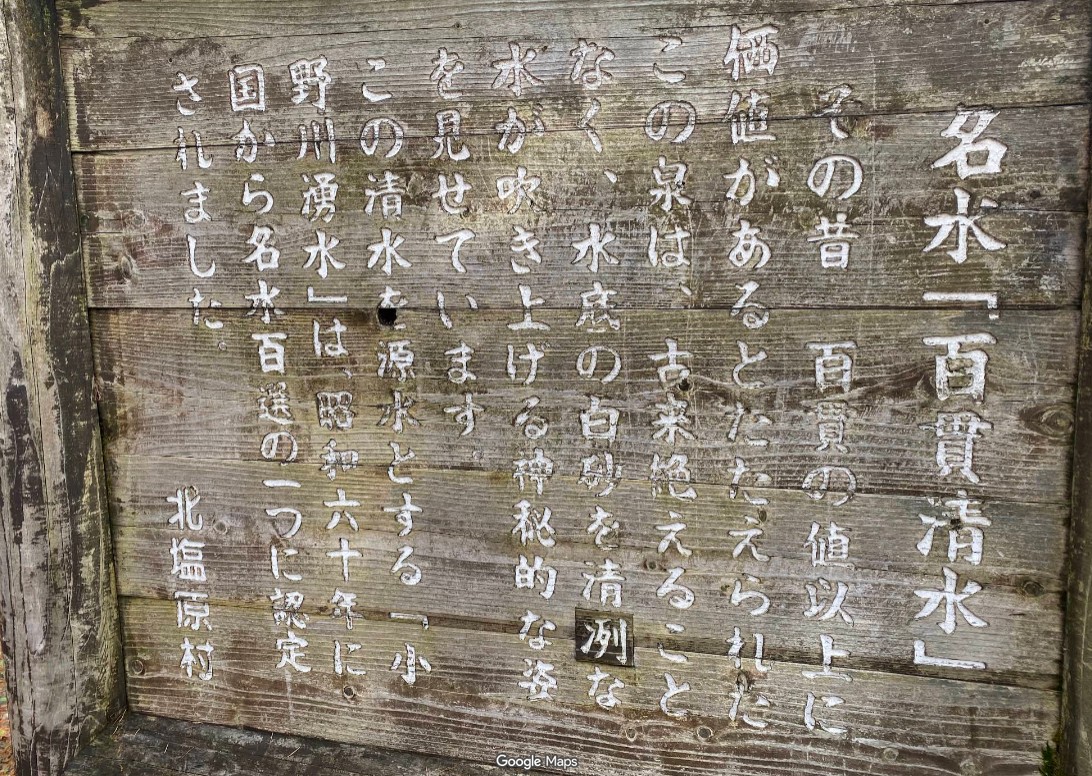 名水「百貫清水」
その昔　百貫の値以上に
価値があるとたたえられた
この泉は、古来絶えること
なく、水底の白砂を清冽な
水が吹き上げる神秘的な姿
を見せています。
この清水を源水とする「小
野川湧水」は、昭和六十年に
国から名水百選の一つに認定
されました。
北塩原村
Google Maps